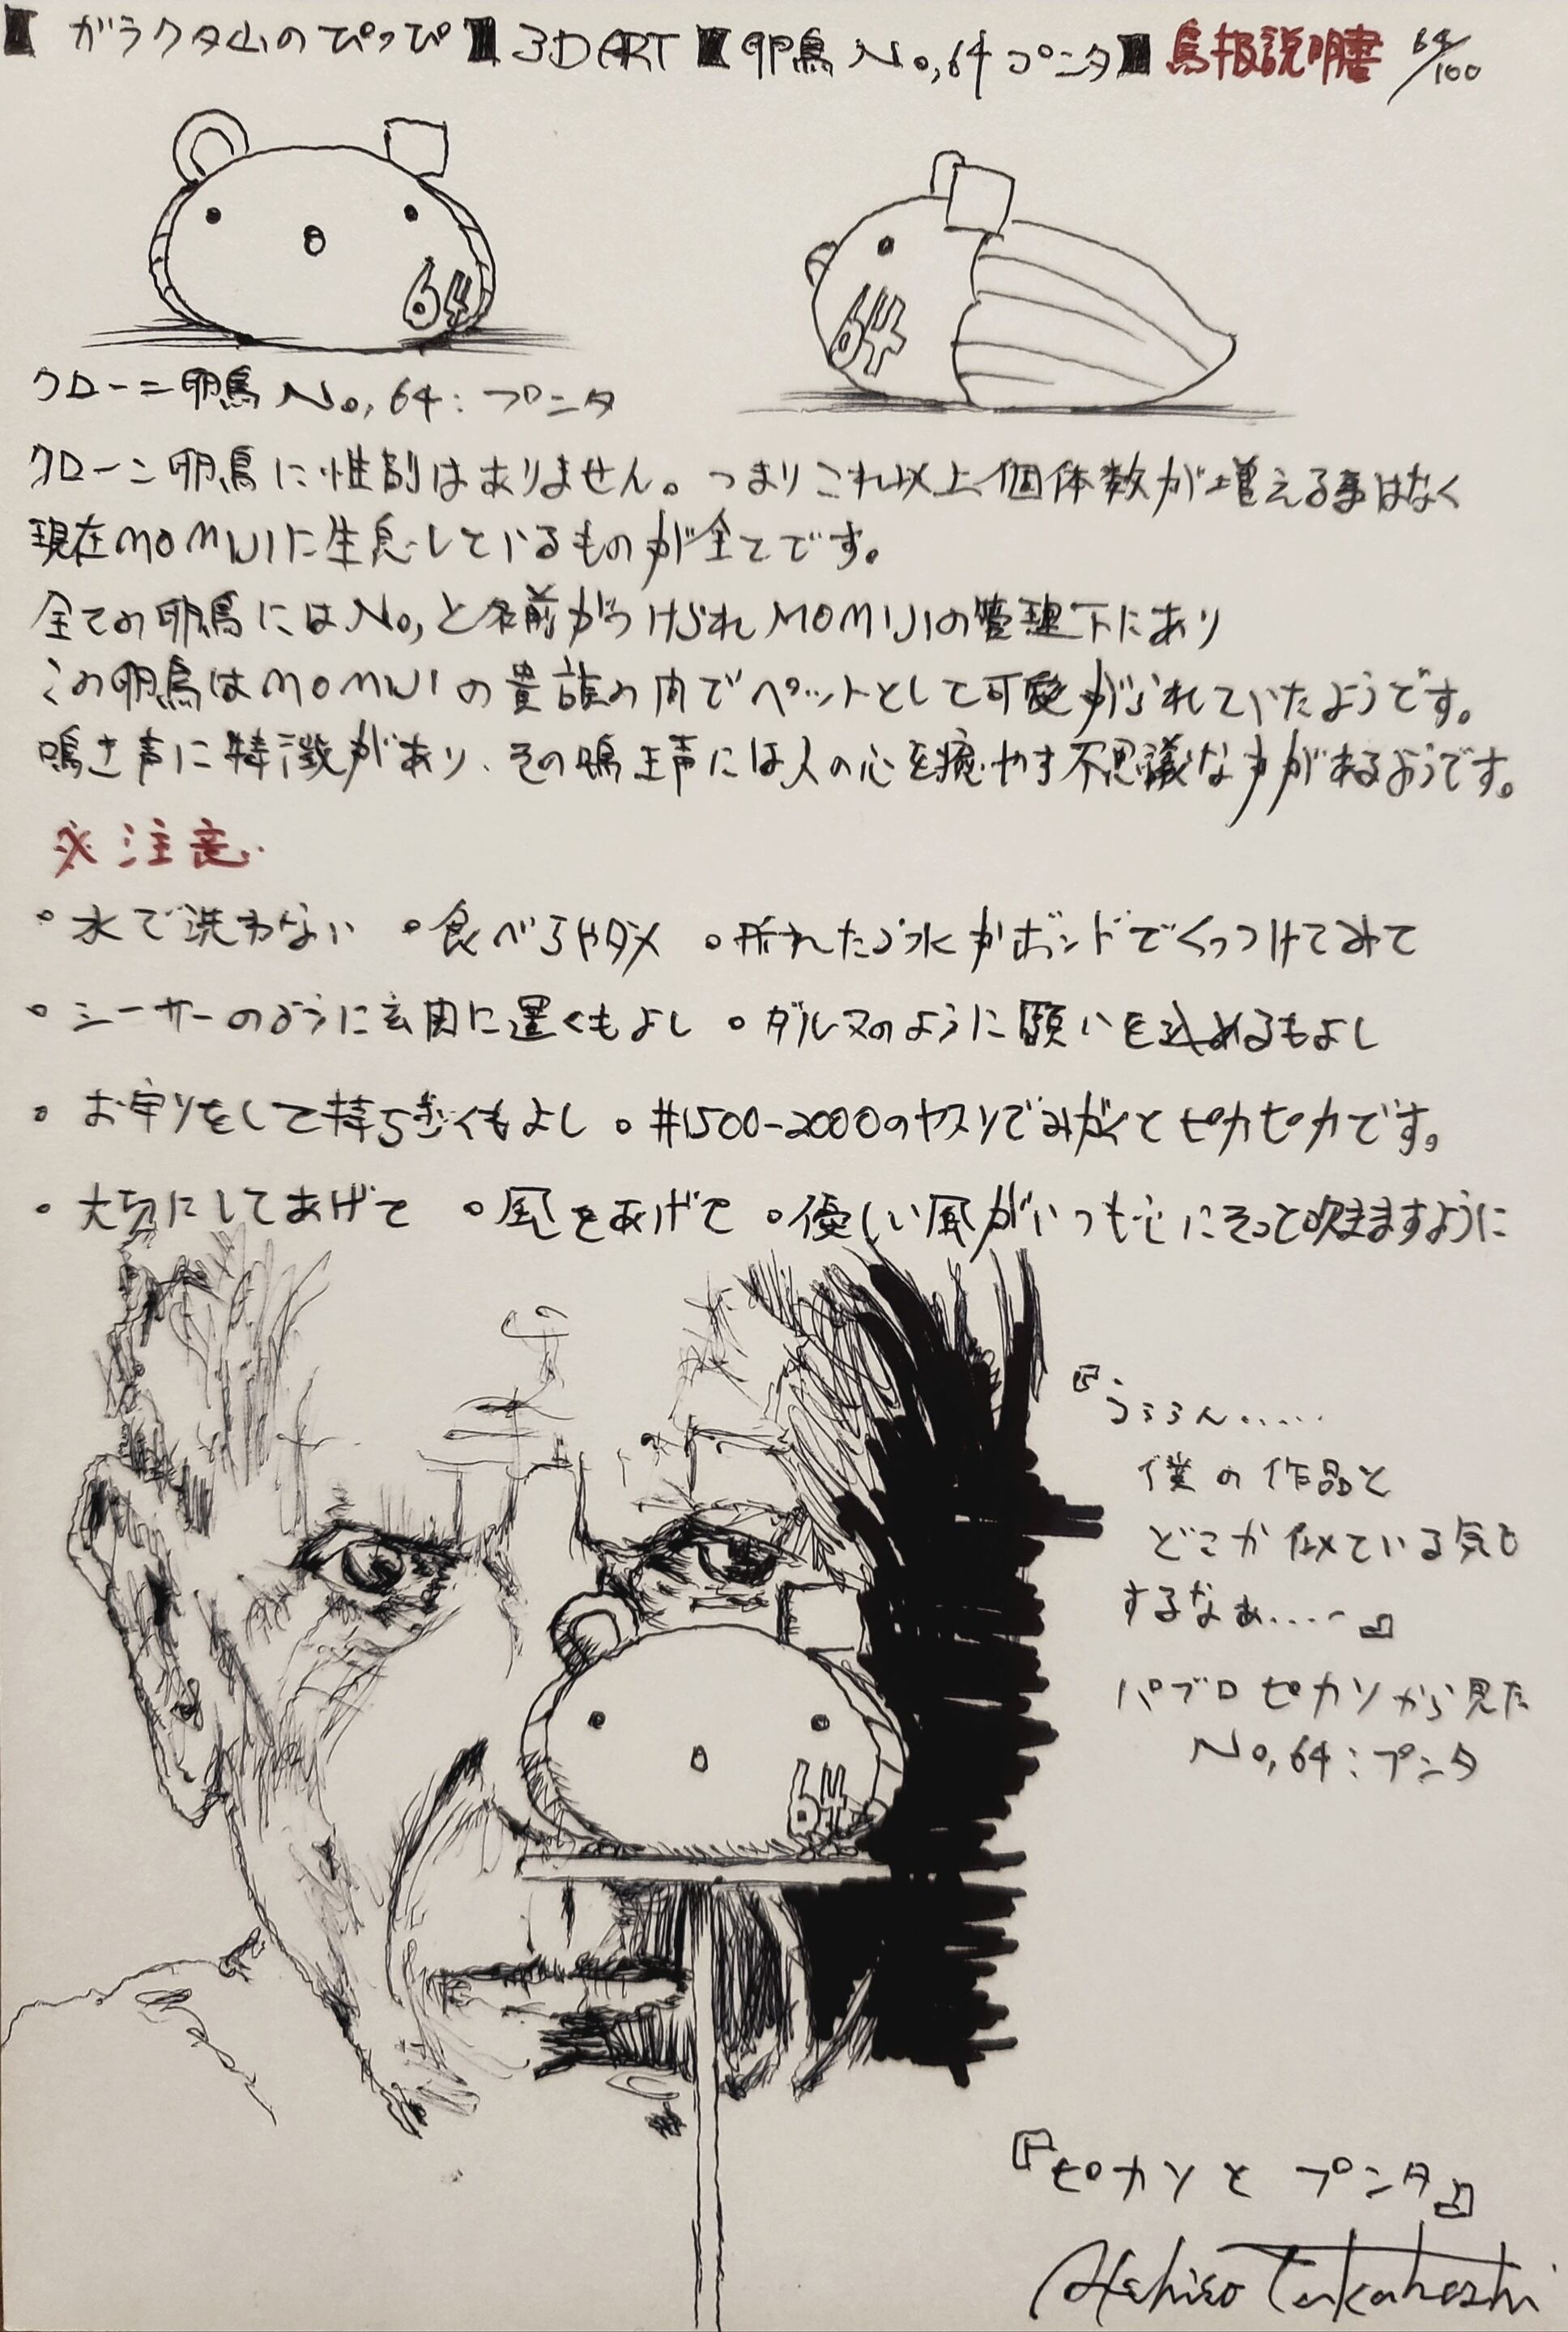 ガラクタ山のぴっぴ 3D ART 卵鳥 No,64 プンタ 鳥扱説明書 64/100
64
64
クローン卵鳥 No,64:プンタ
クローン卵鳥に性別はありません。つまりこれ以上個体数が増える事はなく
現在MOMIJIに生息しているものが全てです。
全ての卵鳥にはNo,と名前がつけられMOMIJIの管理下にあり
この卵鳥はMOMIJIの貴族の内でペットとして可愛がられていたようです。
鳴き声に特徴があり、その鳴き声には人の心を癒やす不思議な力があるようです。
※注意
・水で洗わない ・食べちゃダメ ・折れたり水かボンドでくっつけてみて
・シーサーのように玄関に置くもよし ・ダルマのように願いを込めるもよし
・お守りをして持ち歩くもよし ・#1500-2000のヤスリでみがくとピカピカです。
・大切にしてあげて ・風をあげて ・優しい風がいつも心にそっと吹きますように
『うぅぅん.....
僕の作品と
どこか似ている気も
するなぁ....』
パブロピカソから見た
No,64:プンタ
64
『ピカソと プンタ』
Akihiro Takahashi